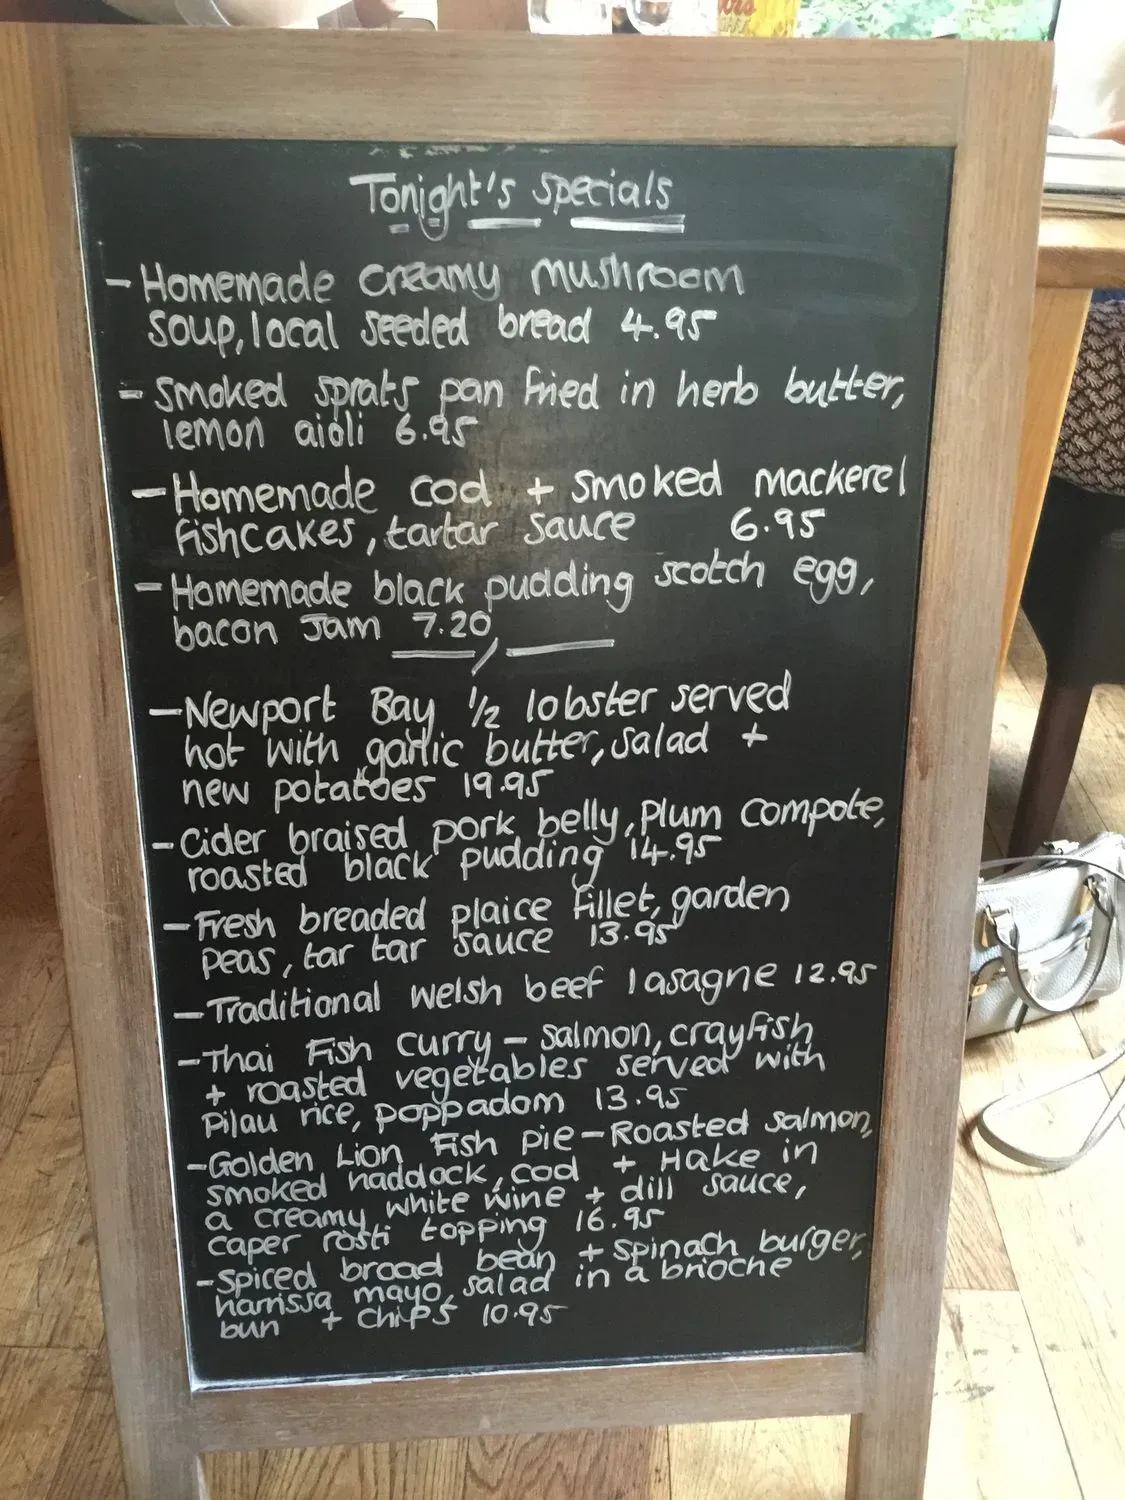 Tonight's Specials
- Homemade creamy mushroom
soup, local seeded bread 4.95
- Smoked sprats pan fried in herb butter,
lemon aioli 6.95
- Homemade cod + smoked mackerel
fishcakes, tartar sauce 6.95
- Homemade black pudding scotch egg,
bacon Jam 7.20
- Newport Bay 1/2 lobster served
hot with garlic butter, salad +
new potatoes 19.95
- Cider braised pork belly, Plum compote,
roasted black pudding 14.95
- Fresh breaded plaice fillet, garden
peas, tar tar sauce 13.95
- Traditional Welsh beef lasagne 12.95
- Thai Fish curry - salmon, crayfish
+ roasted vegetables served with
Pilau rice, poppadom 13.95
- Golden Lion Fish pie - Roasted salmon,
smoked haddock, cod + Hake in
a creamy white wine + dill sauce,
caper rosti topping 16.95
- Spiced broad bean + spinach burger,
harrissa mayo, salad in a brioche
bun + chips 10.95